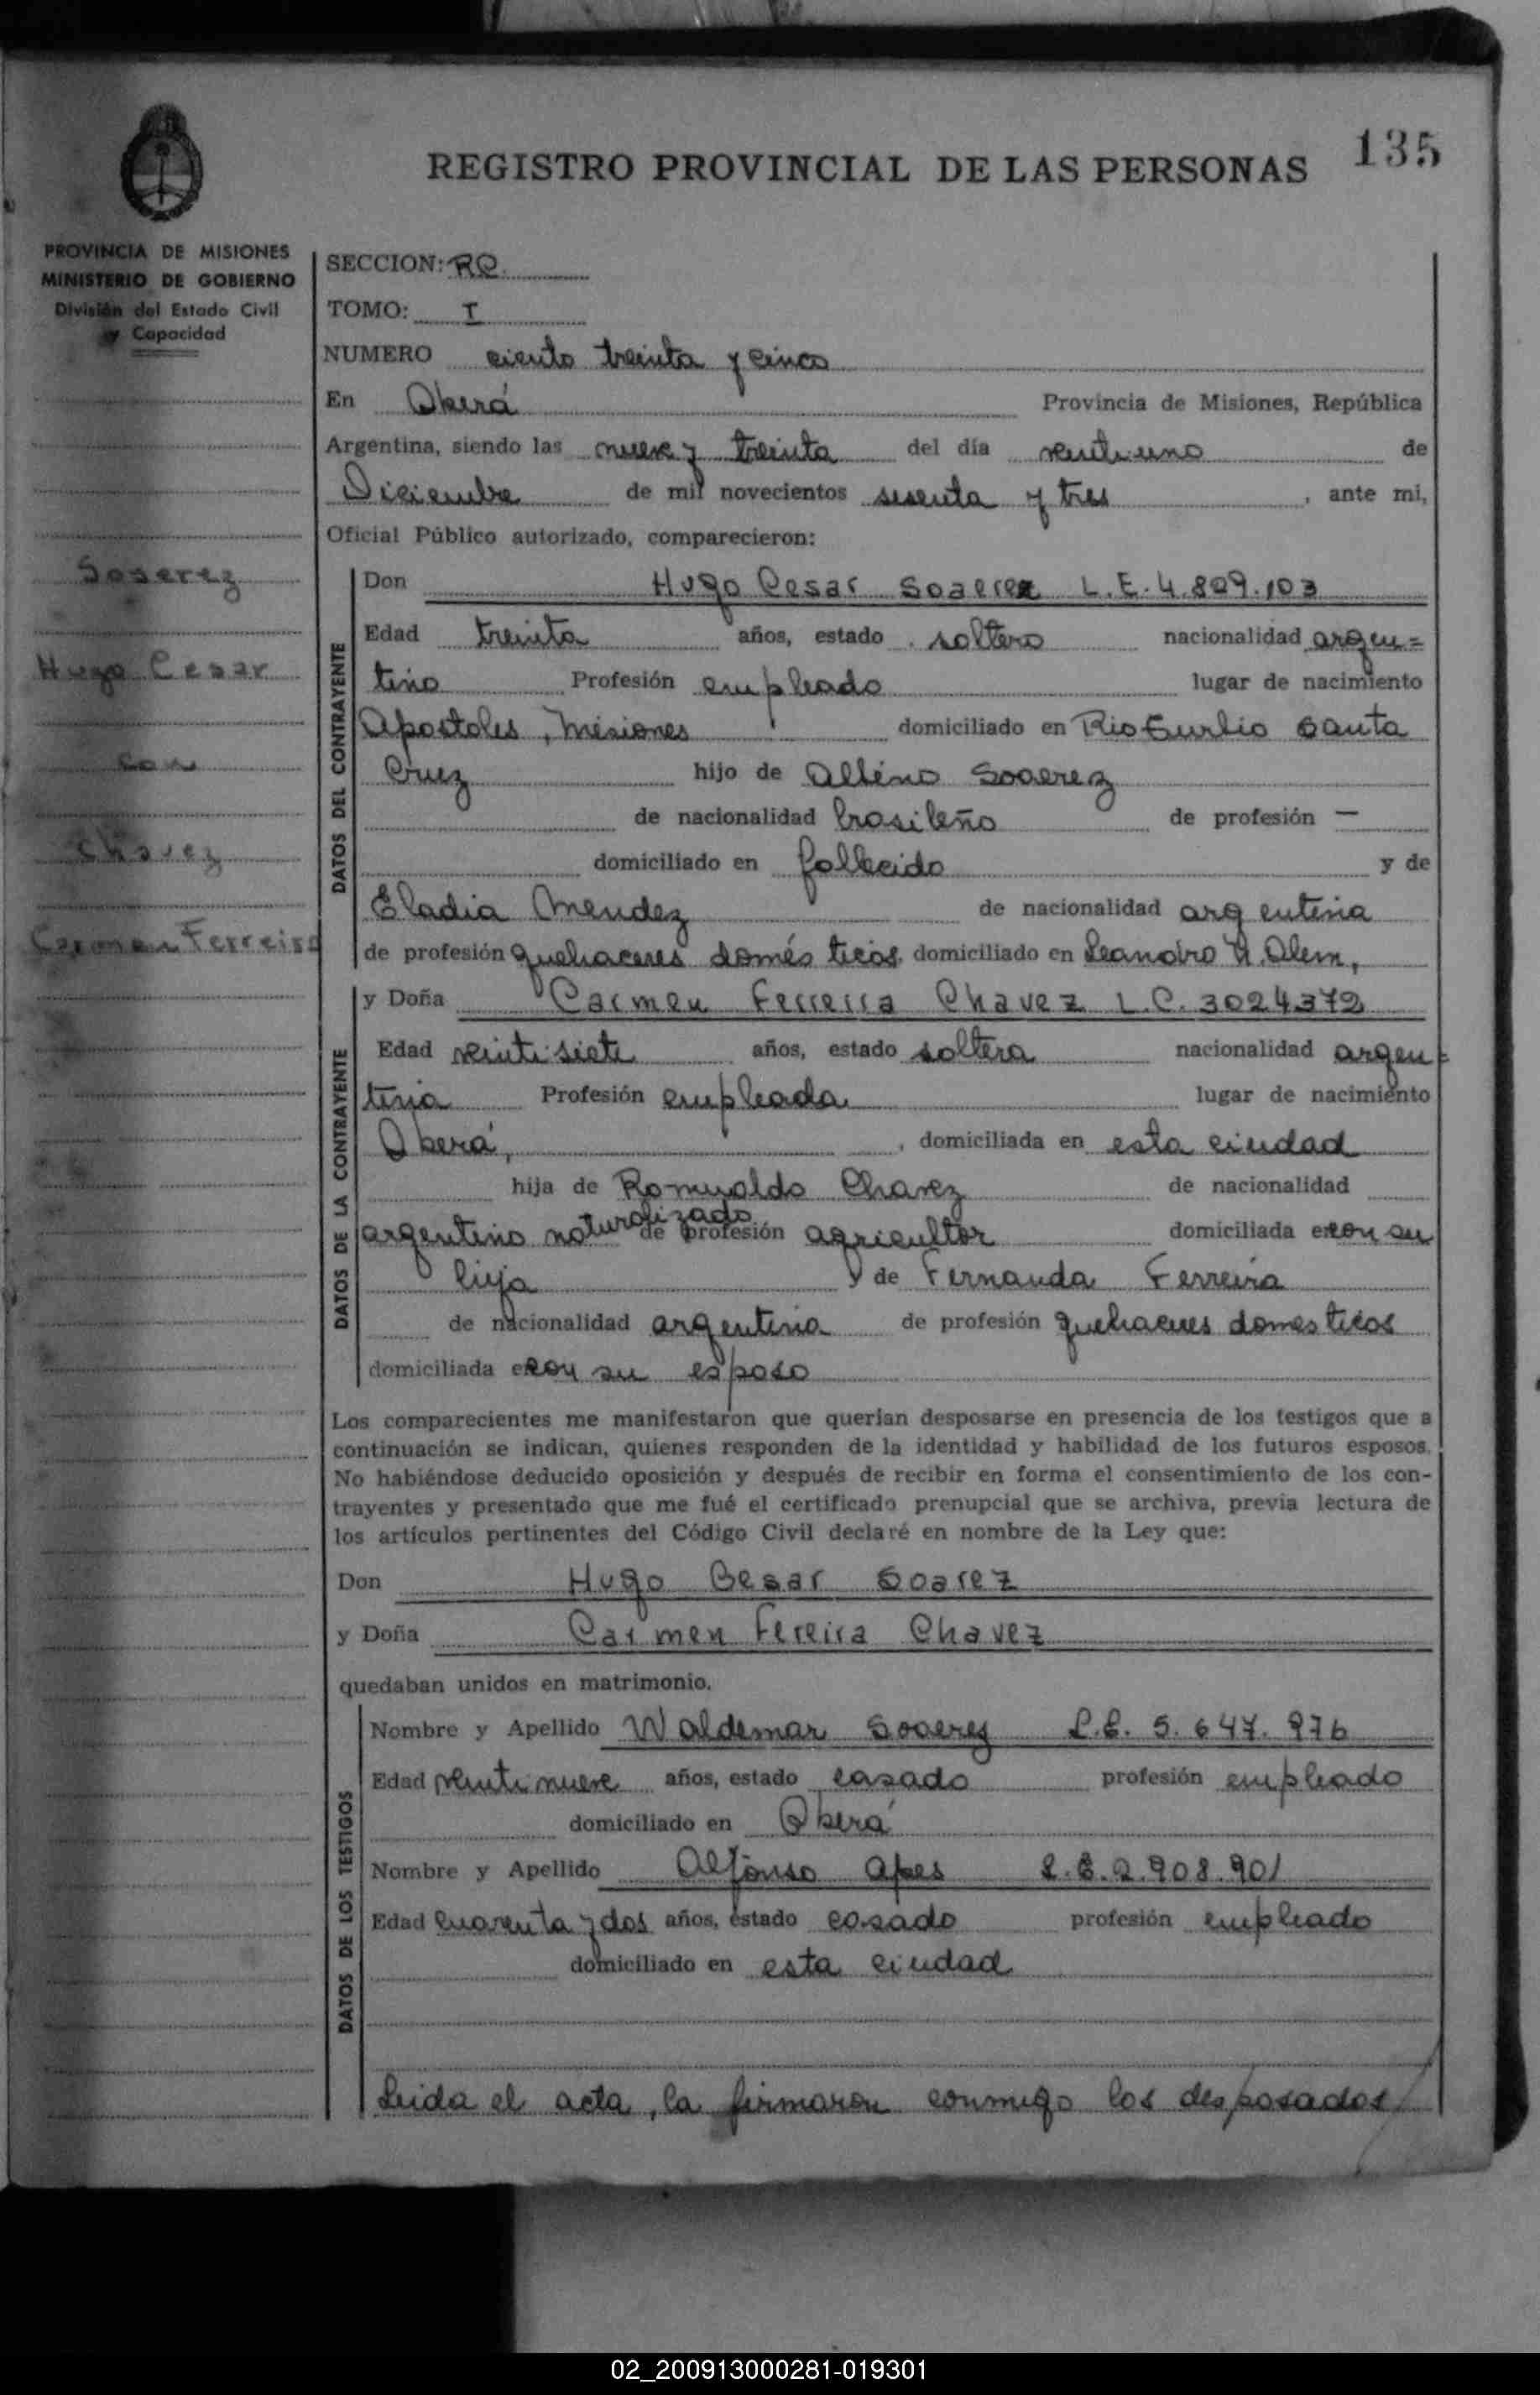 135
REGISTRO PROVINCIAL DE LAS PERSONAS
PROVINCIA DE MISIONES
MINISTERIO DE GOBIERNO
División del Estado Civil
y Capacidad
Soaerez
Hugo Cesar
con
Chavez
Carmen Ferreira
SECCION: RC.
TOMO: I
NUMERO ciento treinta y cinco
En Oberá Provincia de Misiones, República
Argentina, siendo las nueve y treinta del día veintiuno de
Diciembre de mil novecientos sesenta y tres, ante mi,
Oficial Público autorizado, comparecieron:
DATOS DEL CONTRAYENTE
Don Hugo Cesar Soaerez L.E. 4.829.103
Edad treinta años, estado soltero nacionalidad argen=
tino Profesión empleado lugar de nacimiento
Apostoles, Misiones domiciliado en Rio Turbio Santa
Cruz hijo de Albino Soaerez
de nacionalidad brasileño de profesión —
domiciliado en fallecido y de
Eladia Mendez de nacionalidad argentina
de profesión quehaceres domésticos, domiciliado en Leandro N. Alem,
DATOS DE LA CONTRAYENTE
y Doña Carmen Ferreira Chavez L.C. 3024372
Edad veintisiete años, estado soltera nacionalidad argen=
tina Profesión empleada lugar de nacimiento
Oberá, , domiciliada en esta ciudad
hija de Romualdo Chavez de nacionalidad
argentino naturalizado de profesión agricultor domiciliada e con su
hija y de Fernanda Ferreira
de nacionalidad argentina de profesión quehaceres domesticos
domiciliada e con su esposo
Los comparecientes me manifestaron que querían desposarse en presencia de los testigos que a
continuación se indican, quienes responden de la identidad y habilidad de los futuros esposos.
No habiéndose deducido oposición y después de recibir en forma el consentimiento de los con-
trayentes y presentado que me fué el certificado prenupcial que se archiva, previa lectura de
los artículos pertinentes del Código Civil declaré en nombre de la Ley que:
Don Hugo Cesar Soarez
y Doña Carmen Fereira Chavez
quedaban unidos en matrimonio.
DATOS DE LOS TESTIGOS
Nombre y Apellido Waldemar Soaerez L.E. 5.647.976
Edad veintinueve años, estado casado profesión empleado
domiciliado en Oberá
Nombre y Apellido Alfonso Apes L.E. 2.908.901
Edad cuarenta y dos años, estado casado profesión empleado
domiciliado en esta ciudad
Leida el acta, la firmaron conmigo los desposados
02_200913000281-019301